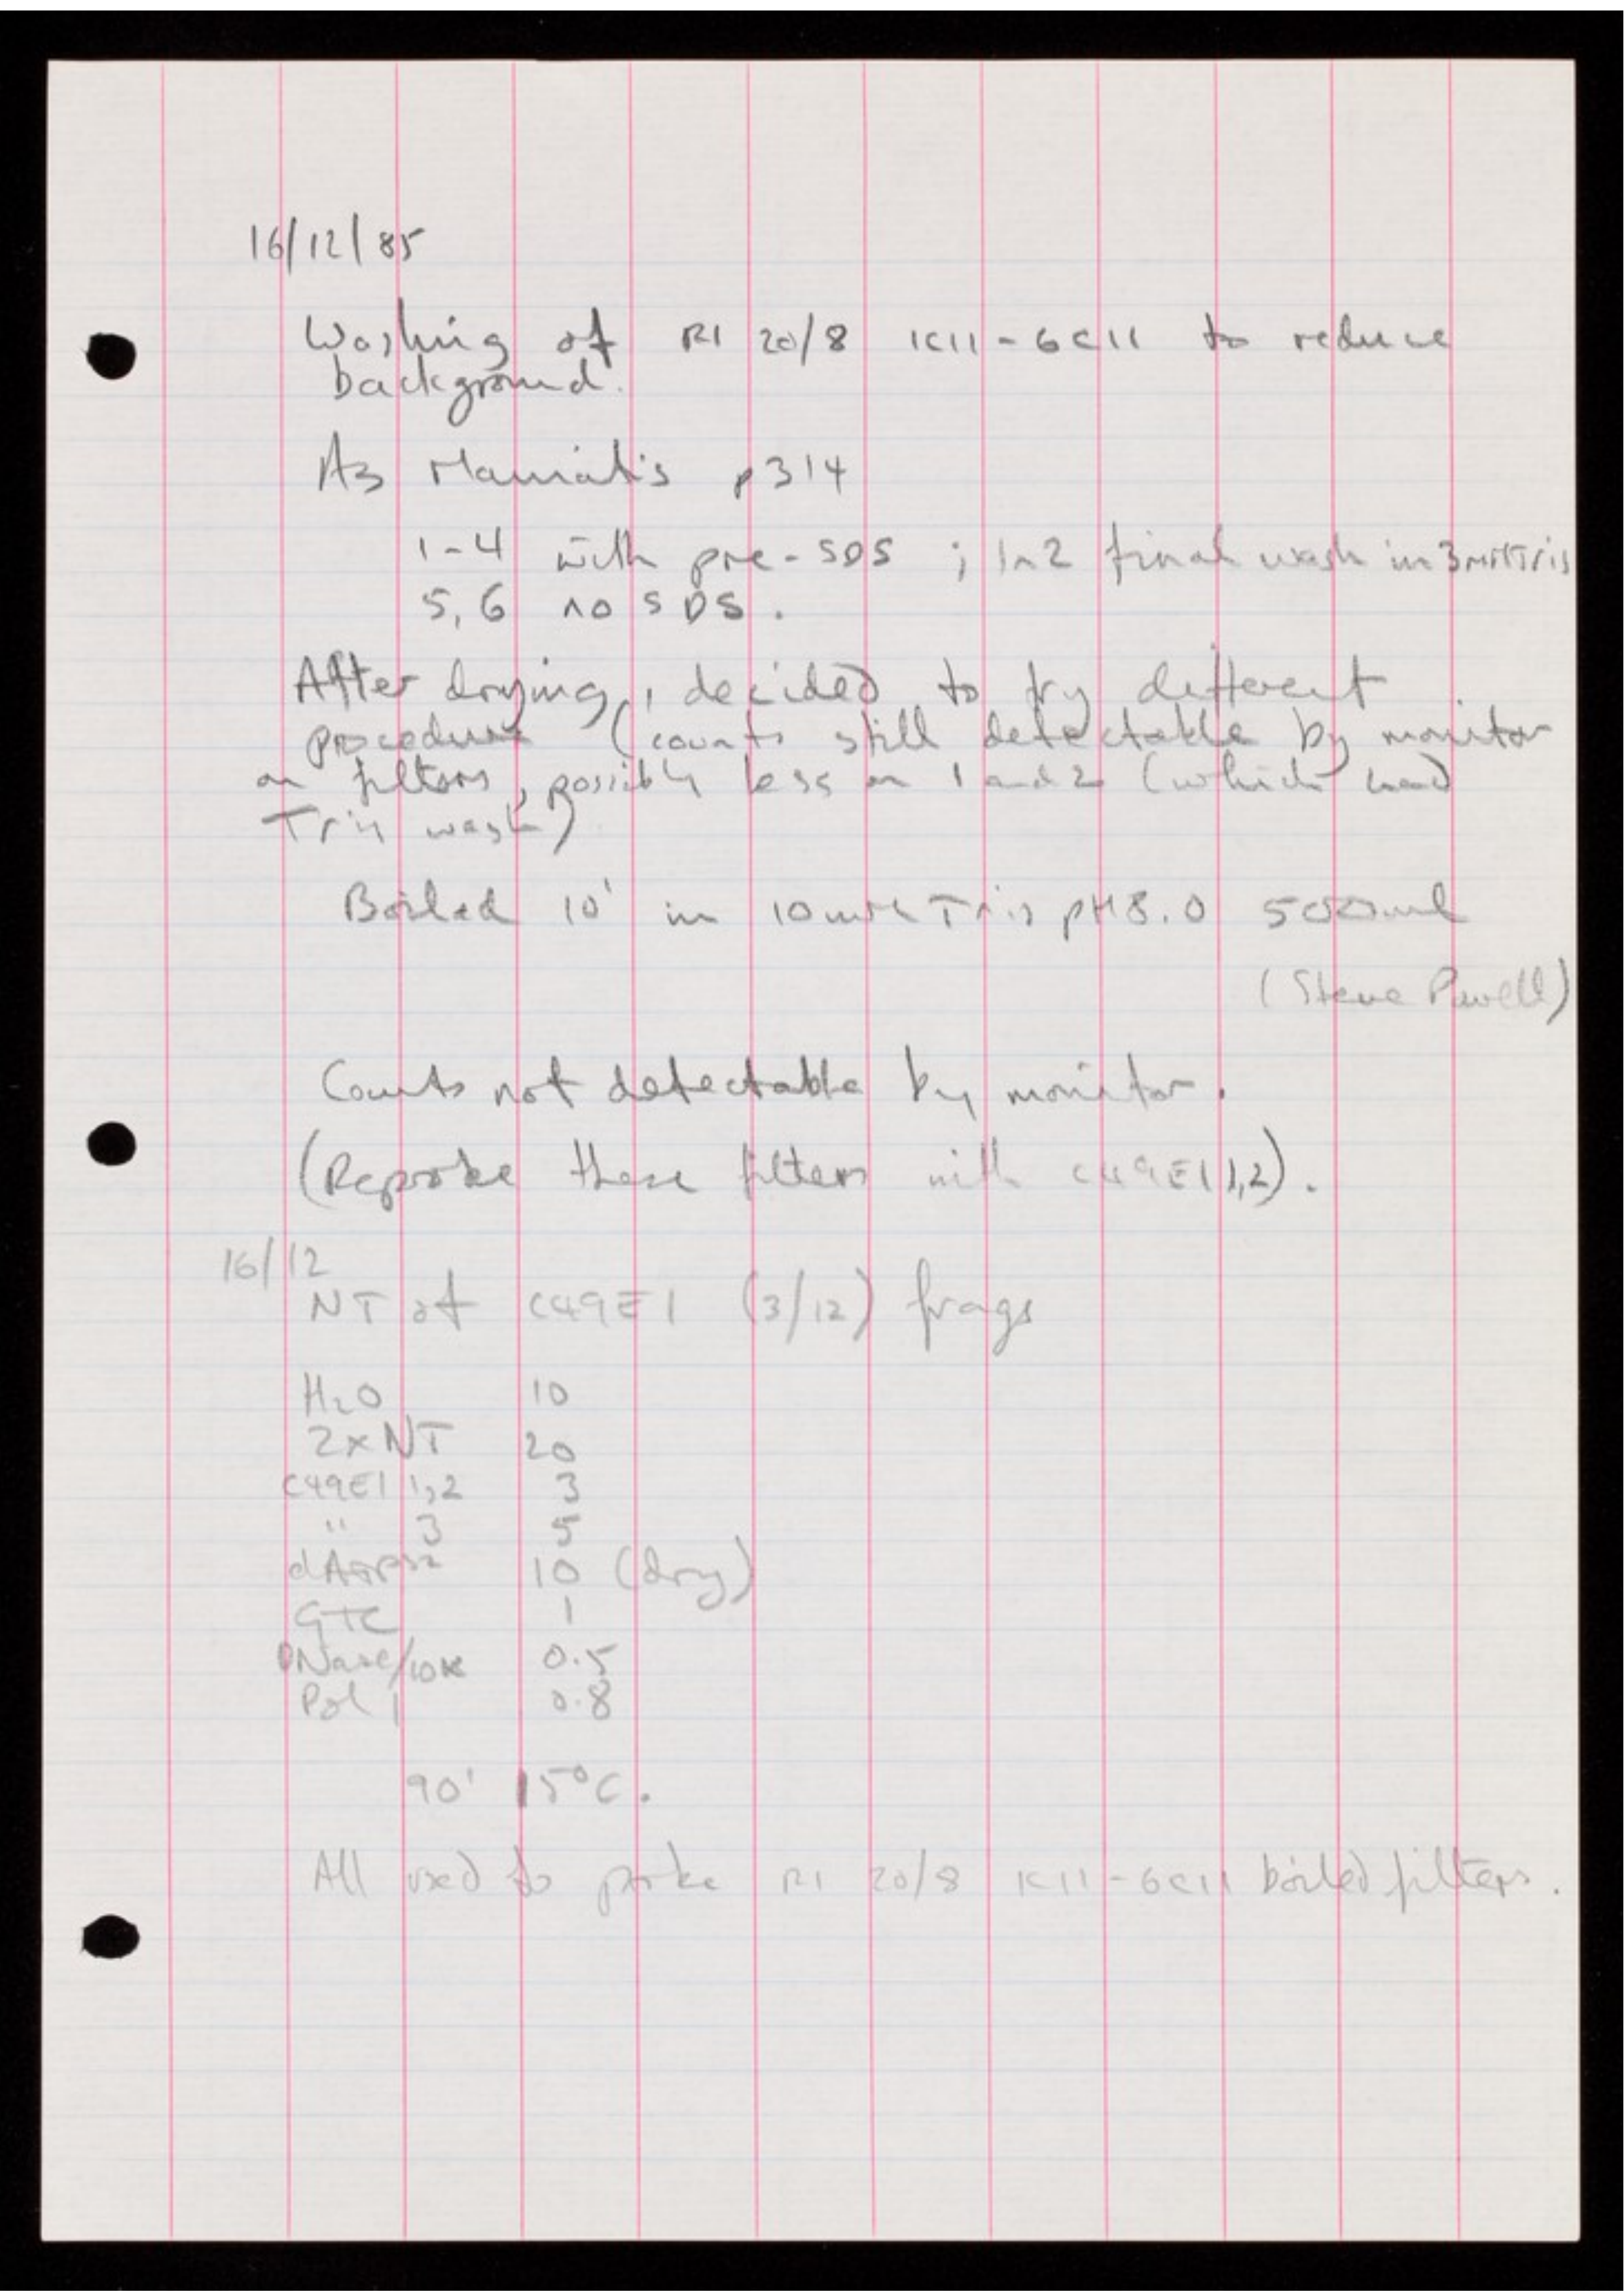 16/12/85
Washing of R1 20/8 1C11-6C11 to reduce
background.
As Maniatis p314
1-4 with pre-SDS ; 1n2 final wash in 3mM Tris
5,6 no SDS.
After drying, decided to try different
procedure (counts still detectable by monitor
on filters, possibly less on 1 and 2 (which had
Tris wash)
Boiled 10' in 10mM Tris pH8.0 500ml
(Steve Powell)
Counts not detectable by monitor.
(Reprobe these filters with C49E1 1,2).
16/12
NT of C49E1 (3/12) frags
H2O 10
2xNT 20
C49E1 1,2 3
" 3 5
dATP32 10 (dry)
GTC 1
DNase/10K 0.5
Pol 1 0.8
90' 15°C.
All used to probe R1 20/8 1C11-6C11 boiled filters.